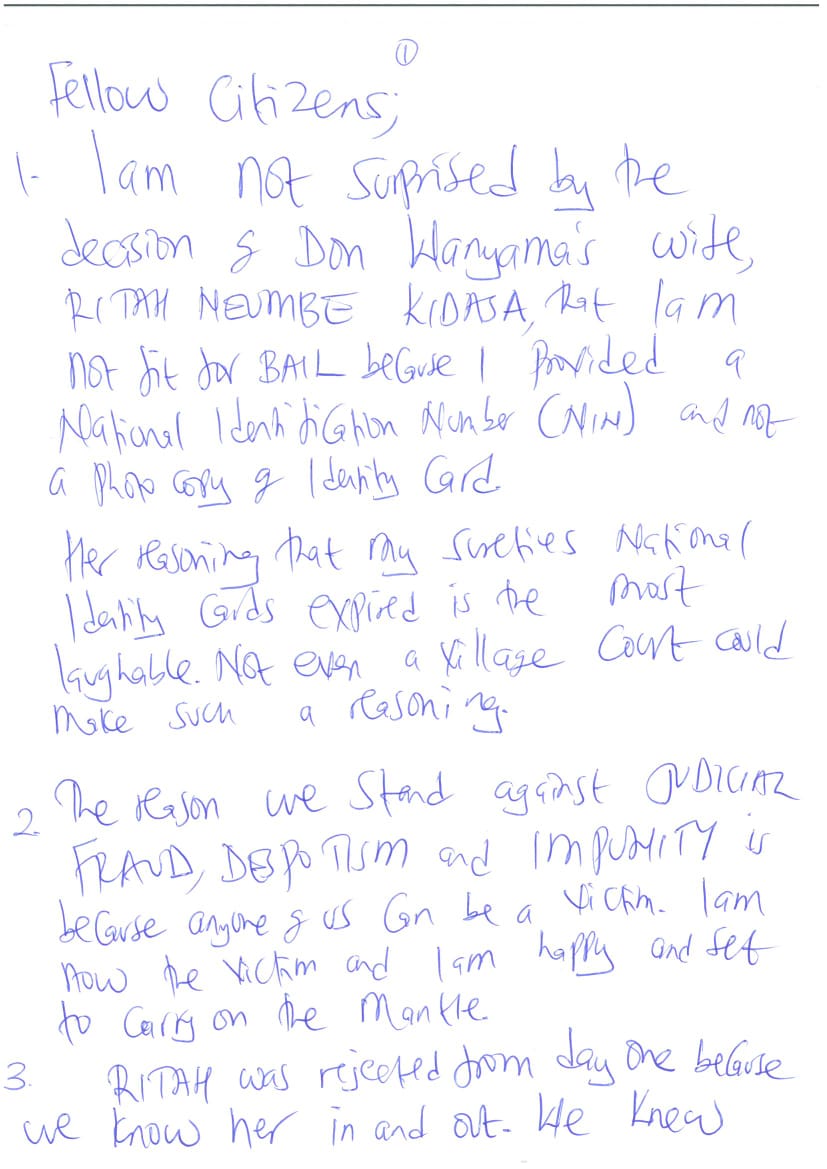 ①
Fellow Citizens;
1- I am not surprised by the
decision of Don Wanyama's wife,
RITAH NEUMBE KIDASA, that I am
not fit for BAIL because I provided a
National Identification Number (NIN) and not
a photo copy of Identity Card.
Her reasoning that my sureties National
Identity Cards expired is the most
laughable. Not even a village Court could
make such a reasoning.
2. The reason we stand against JUDICIAL
FRAUD, DESPOTISM and IMPUNITY is
because anyone of us can be a victim. I am
now the victim and I am happy and set
to carry on the mantle.
3. RITAH was rejected from day one because
we know her in and out. We knew